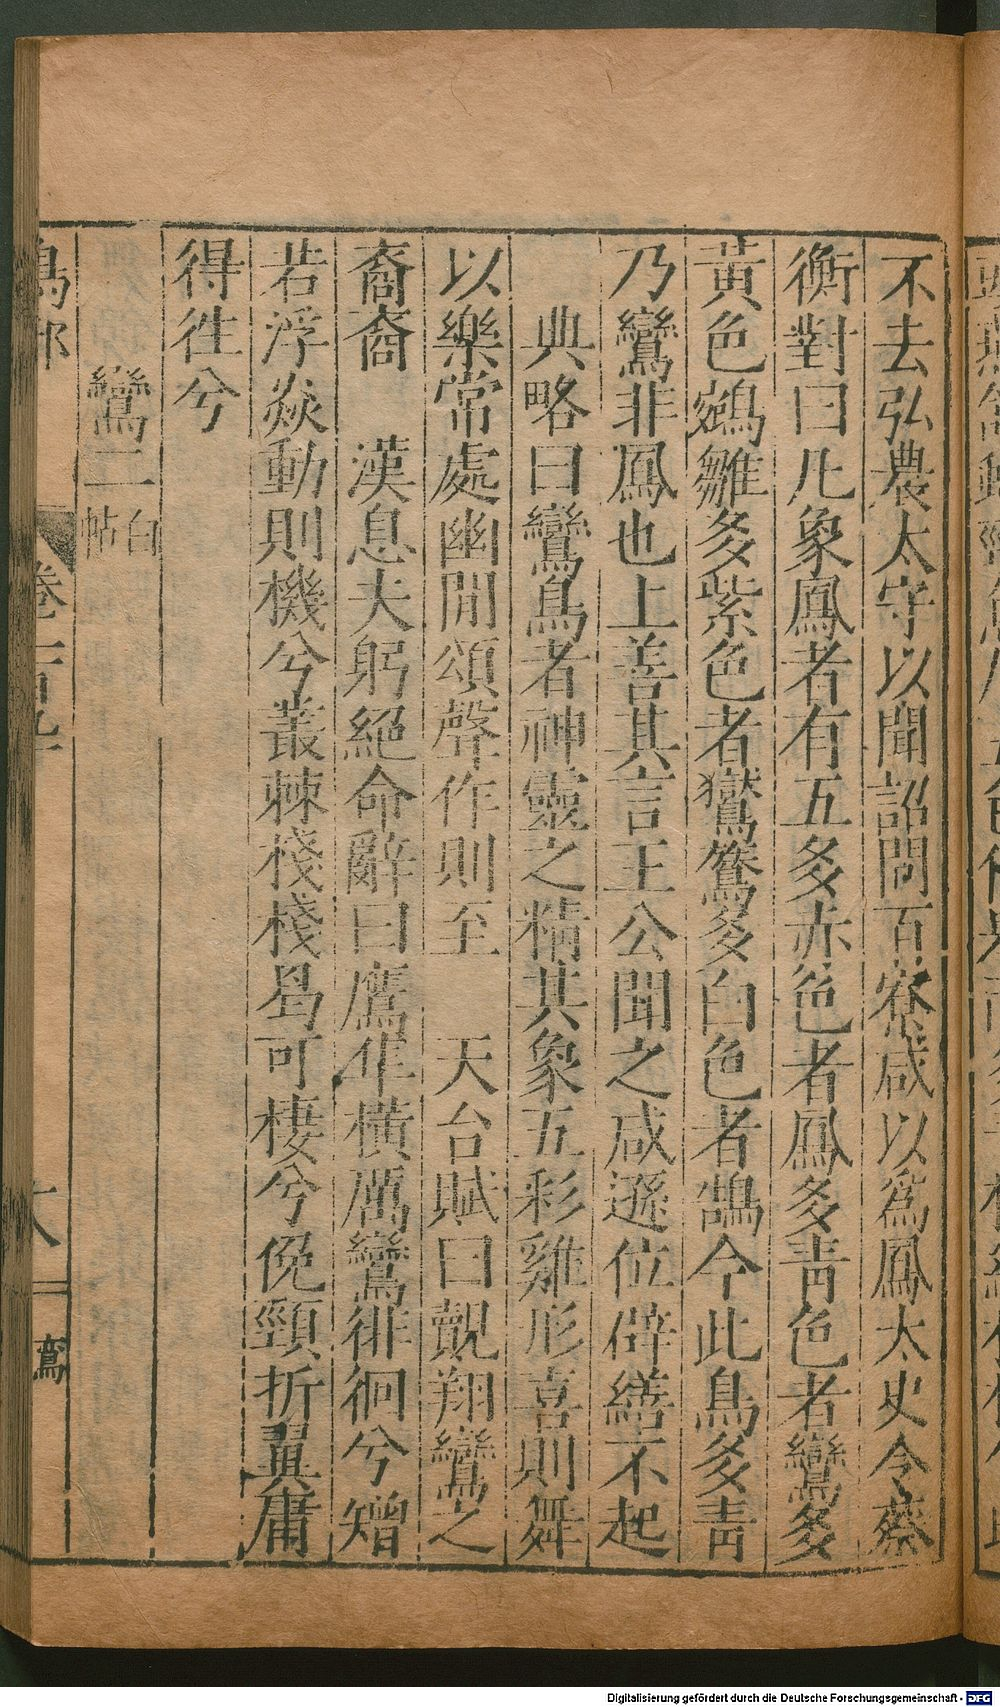 不去弘農太守以聞詔問百寮咸以爲鳳太史令蔡
衡對曰凡象鳳者有五多赤色者鳳多青色者鸞多
黃色鵷雛多紫色者鸑鷟多白色者鵠今此鳥多青
乃鸞非鳳也上善其言王公聞之咸遜位辟繕不起
典略曰鸞鳥者神靈之精其象五彩雞形喜則舞
以樂常處幽閒頌聲作則至　天台賦曰覿翔鸞之
裔裔　漢息夫躬絕命辭曰鷹隼橫厲鸞徘徊兮矰
若浮猋動則機兮叢棘棧棧曷可棲兮俛頸折翼庸
得往兮
鸞二白帖
鳥部
卷一百九
鸞
Digitalisierung gefördert durch die Deutsche Forschungsgemeinschaft - DFG